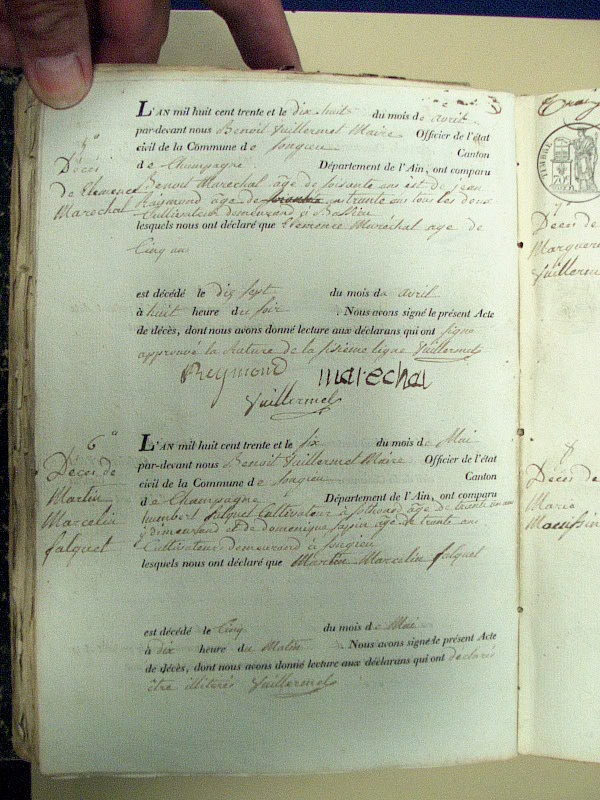 5°
Décès
de Clemence
Marechal
L'AN mil huit cent trente et le dix huit du mois de avril
par-devant nous Benoit Vuillermet Maire Officier de l'état
civil de la Commune de Songieu Canton
de Champagne Département de l'Ain, ont comparu
Benoit Marechal âgé de soixante ans et de jean
Raymond âgé de trante ans tous les deux
Cultivateur demeurand à
lesquels nous ont déclaré que Clemence Maréchal age de
Cinq ans
est décédé le dix sept du mois de avril
à huit heure du soir . Nous avons signé le présent Acte
de décès, dont nous avons donné lecture aux déclarans qui ont signe
approuvé la Rature de la sixieme ligne Vuillermet
Reymond marechal
Vuillermet
6°
Décès de
Martin
Marcelin
falquet
L'AN mil huit cent trente et le six du mois de Mai
par-devant nous Benoit Vuillermet Maire Officier de l'état
civil de la Commune de Songieu Canton
de Champagne Département de l'Ain, ont comparu
humbert falquet Cultivateur à Sothonod âge de trante ans
y demeurand et de domenique âge de trante ans
Cultivateur demeurand à Songieu
lesquels nous ont déclaré que Martin Marcelin falquet
est décédé le Cinq du mois de Mai
à dix heure du Matin . Nous avons signé le présent Acte
de décès, dont nous avons donné lecture aux déclarans qui ont declarés
être illiterés Vuillermet
TIMBRE
7°
Déces de
Marguerite
Vuillermet
8
Déces de
Marie